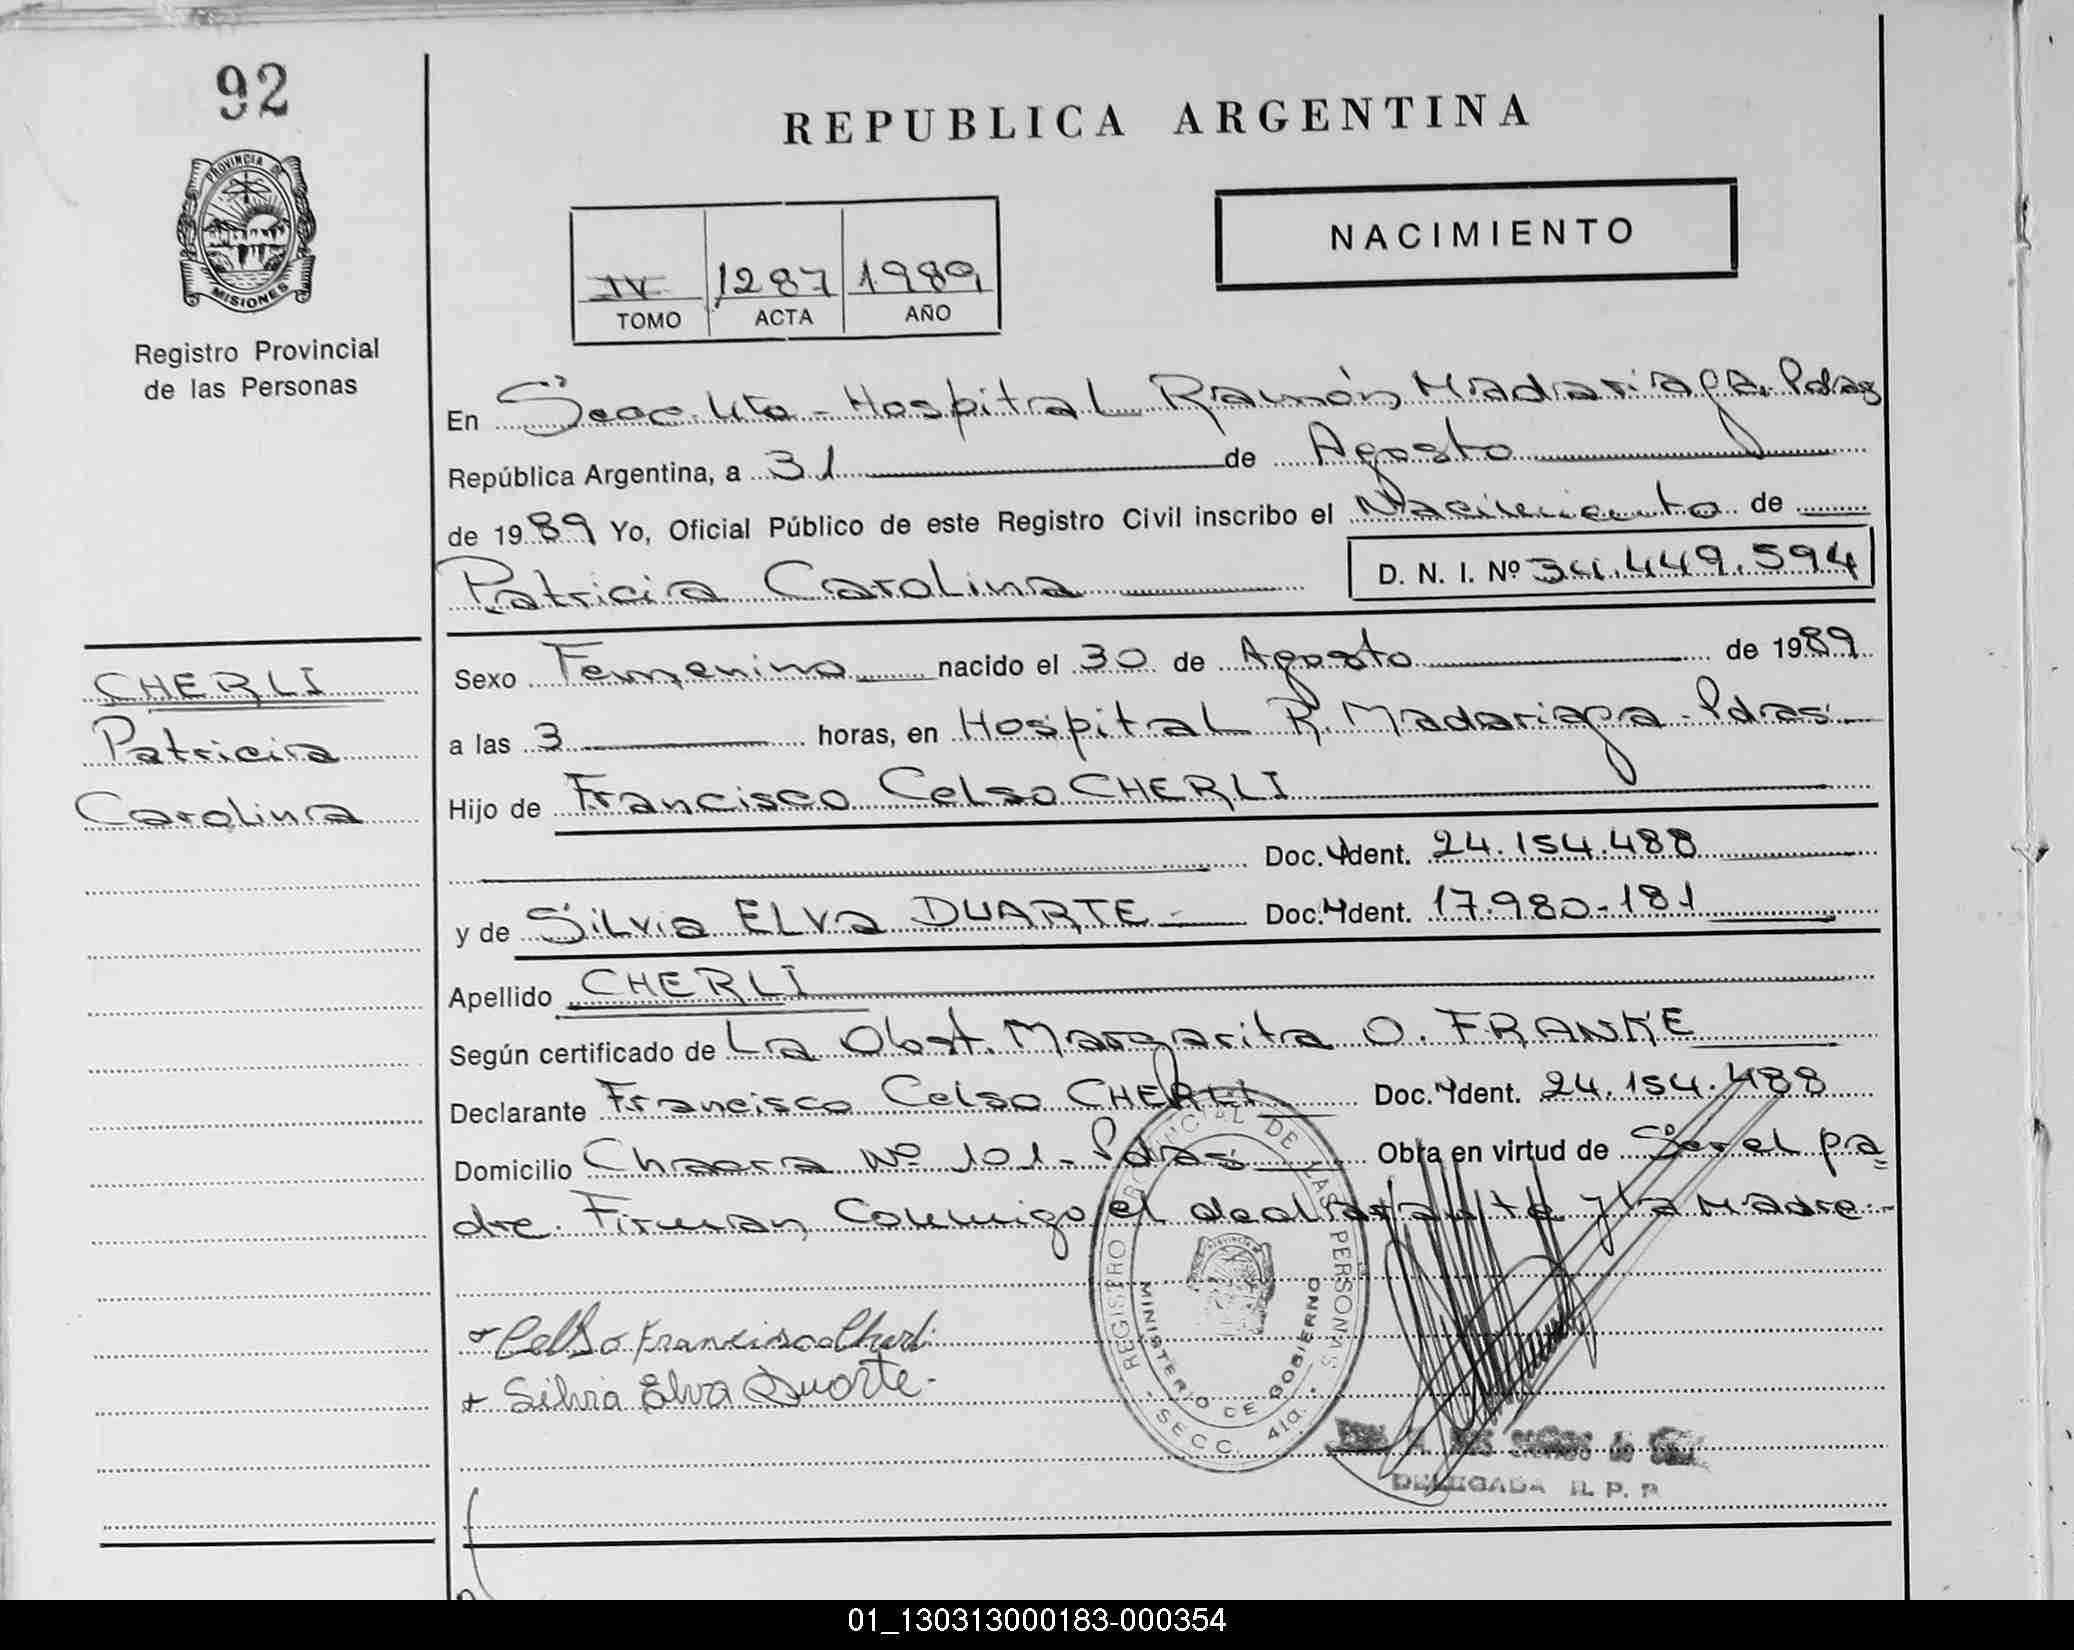 92
REPUBLICA ARGENTINA
PROVINCIA DE
MISIONES
Registro Provincial
de las Personas
NACIMIENTO
IV 1287 1989
TOMO ACTA AÑO
En Secc. 4ta - Hospital Ramón Madariaga. Pdas
República Argentina, a 31 de Agosto
de 1989 Yo, Oficial Público de este Registro Civil inscribo el Nacimiento de
Patricia Carolina
D. N. I. Nº 34.449.594
CHERLI
Patricia
Carolina
Sexo Femenino nacido el 30 de Agosto de 1989
a las 3 horas, en Hospital R. Madariaga - Pdas.
Hijo de Francisco Celso CHERLI
Doc. Ident. 24.154.488
y de Silvia ELva DUARTE - Doc. Ident. 17.980-181
Apellido CHERLI
Según certificado de La Obst. Margarita O. FRANKE
Declarante Francisco Celso CHERLI Doc. Ident. 24.154.488
Domicilio Chacra Nº 101 - Pdas Obra en virtud de Ser el pa
dre. Firman Conmigo el declarante y la Madre.-
Celso Francisco Cherli
Silvia Elva Duarte.-
REGISTRO PROVINCIAL DE LAS PERSONAS
MINISTERIO DE GOBIERNO
SECC. 4ta.
PROVINCIA
DELEGADA R. P. P.
01_130313000183-000354